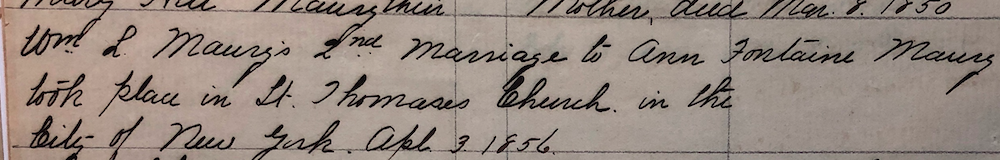 Mary Hill Maury their Mother, died Mar. 8. 1850
Wm L. Maury's 2nd Marriage to Ann Fontaine Maury
took place in St. Thomases Church. in the
City of New York. Apl. 3. 1856.